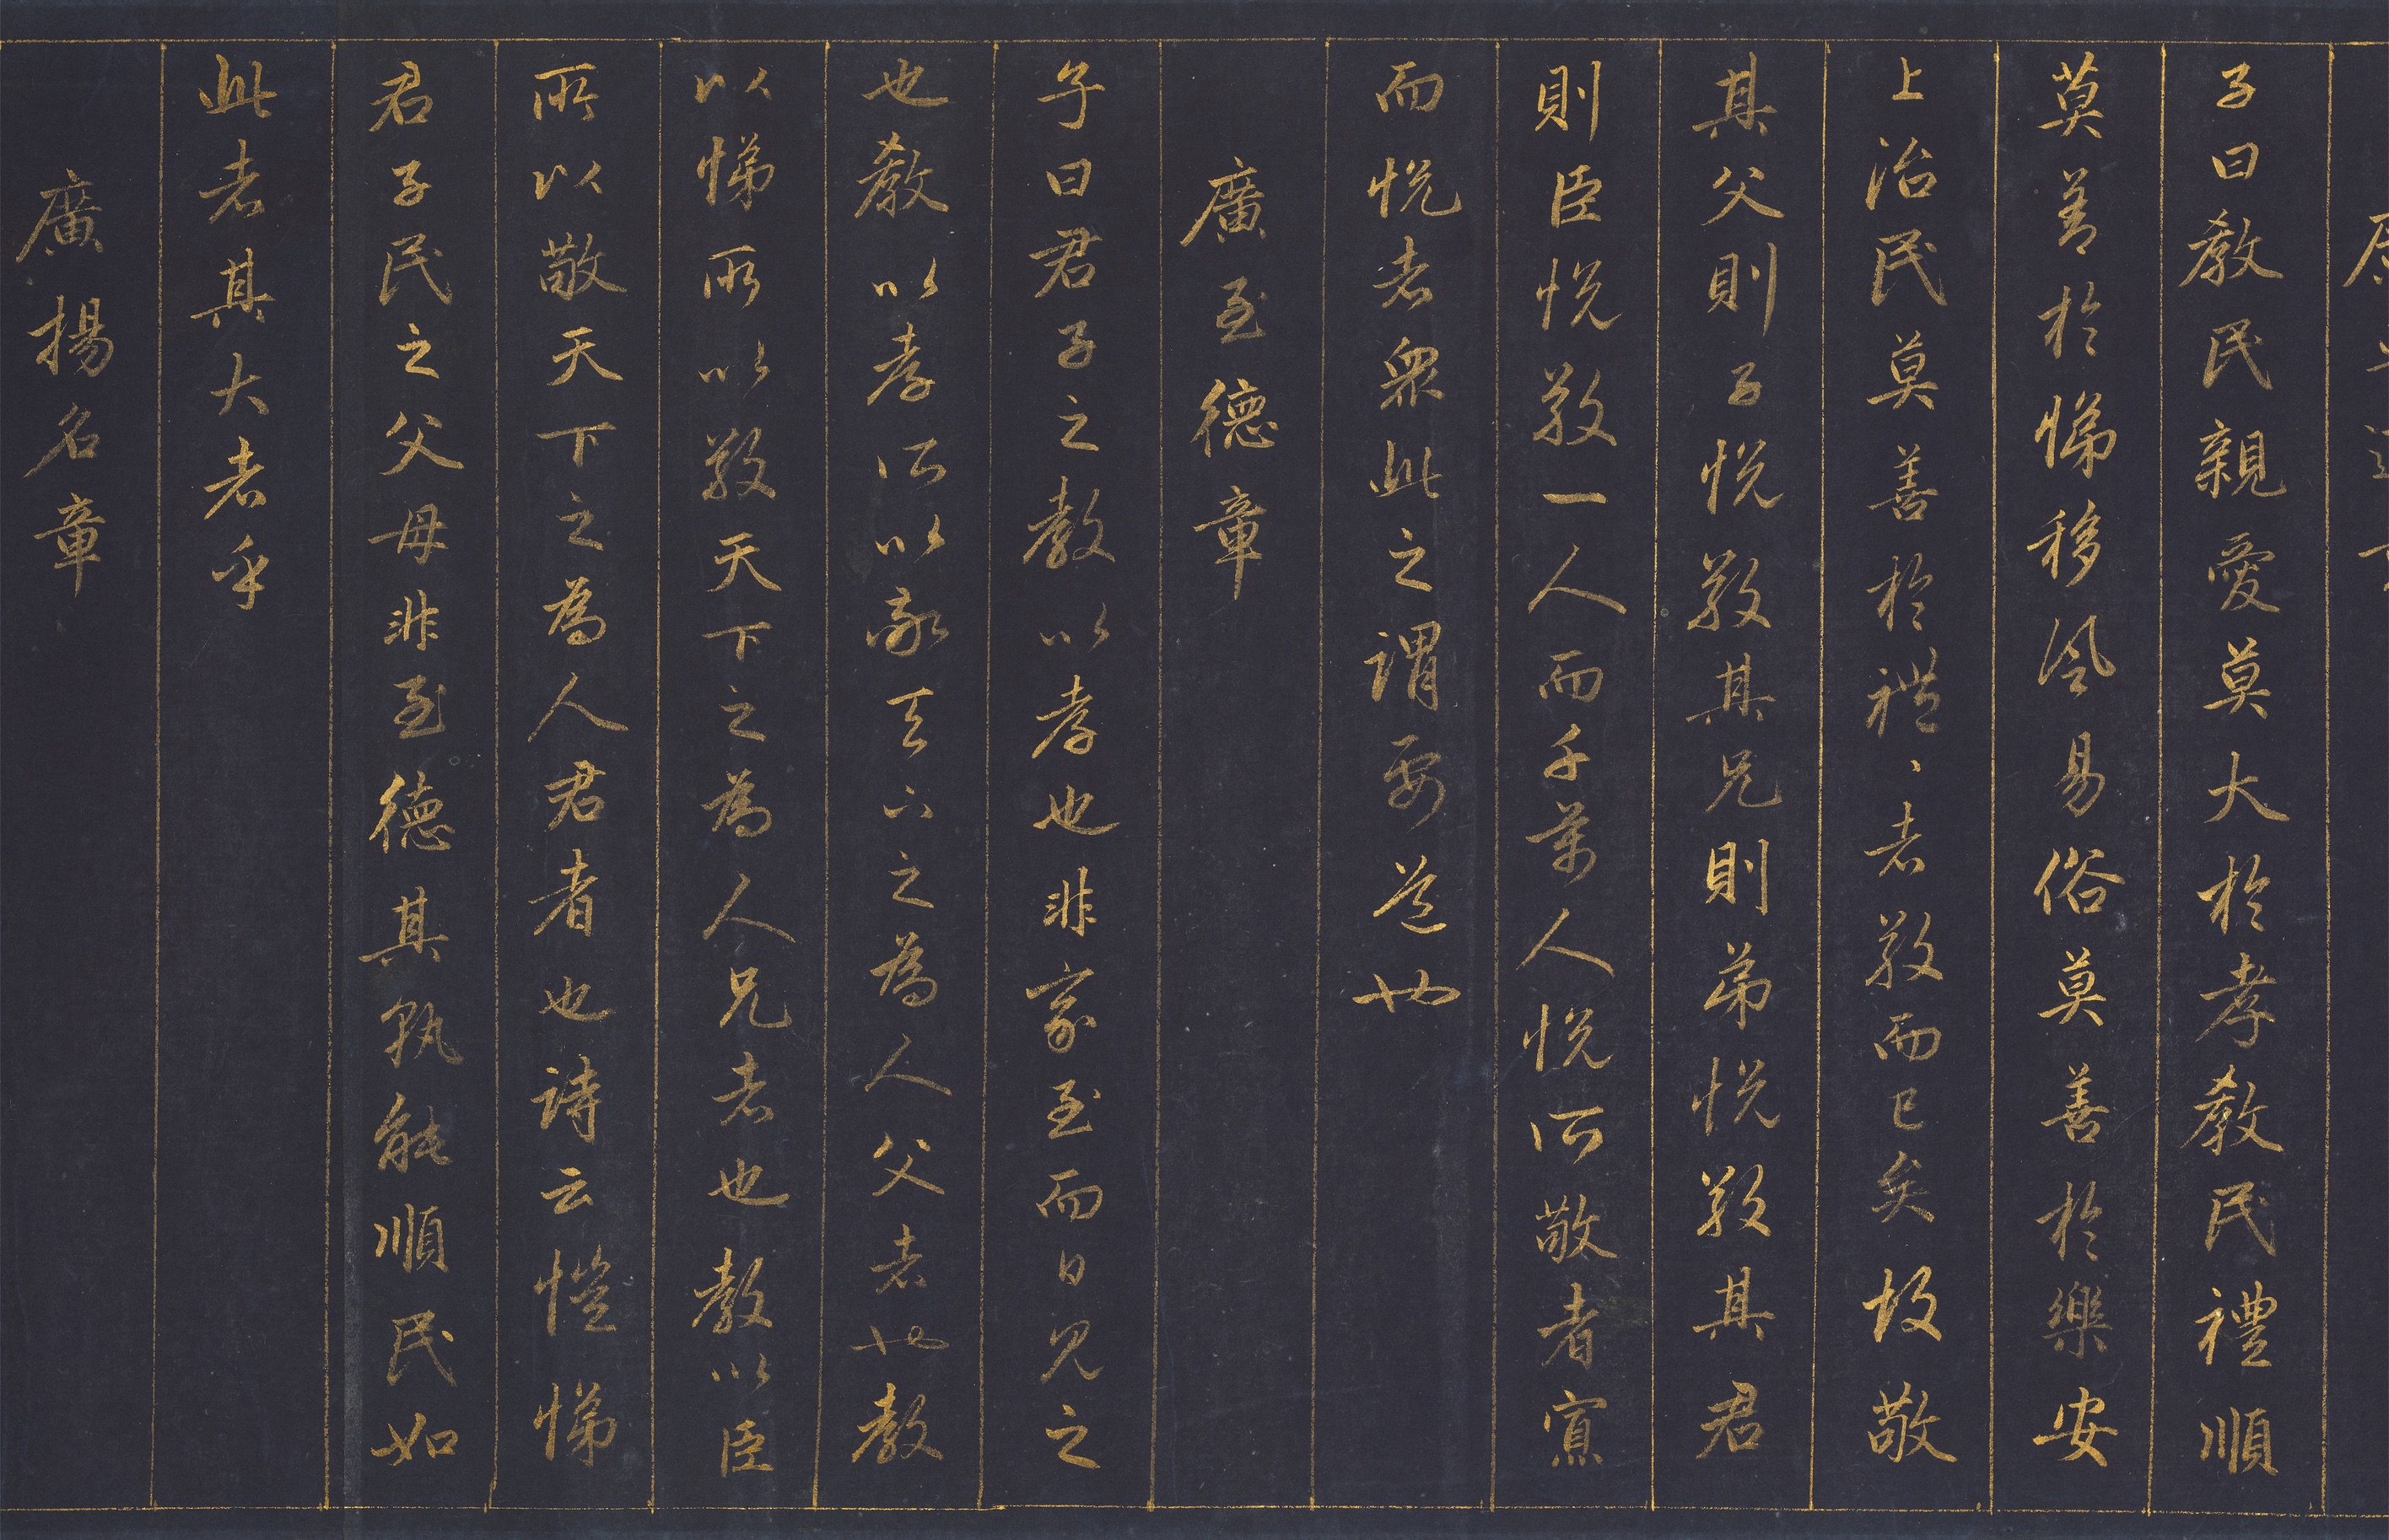 廣要道章
子曰教民親愛莫大於孝教民禮順
莫善於悌移風易俗莫善於樂安
上治民莫善於禮〻者敬而已矣故敬
其父則子悅敬其兄則弟悅敬其君
則臣悅敬一人而千萬人悅所敬者寡
而悅者眾此之謂要道也
廣至德章
子曰君子之教以孝也非家至而日見之
也教以孝所以敬天下之為人父者也教
以悌所以敬天下之為人兄者也教以臣
所以敬天下之為人君者也詩云愷悌
君子民之父母非至德其孰能順民如
此者其大者乎
廣揚名章